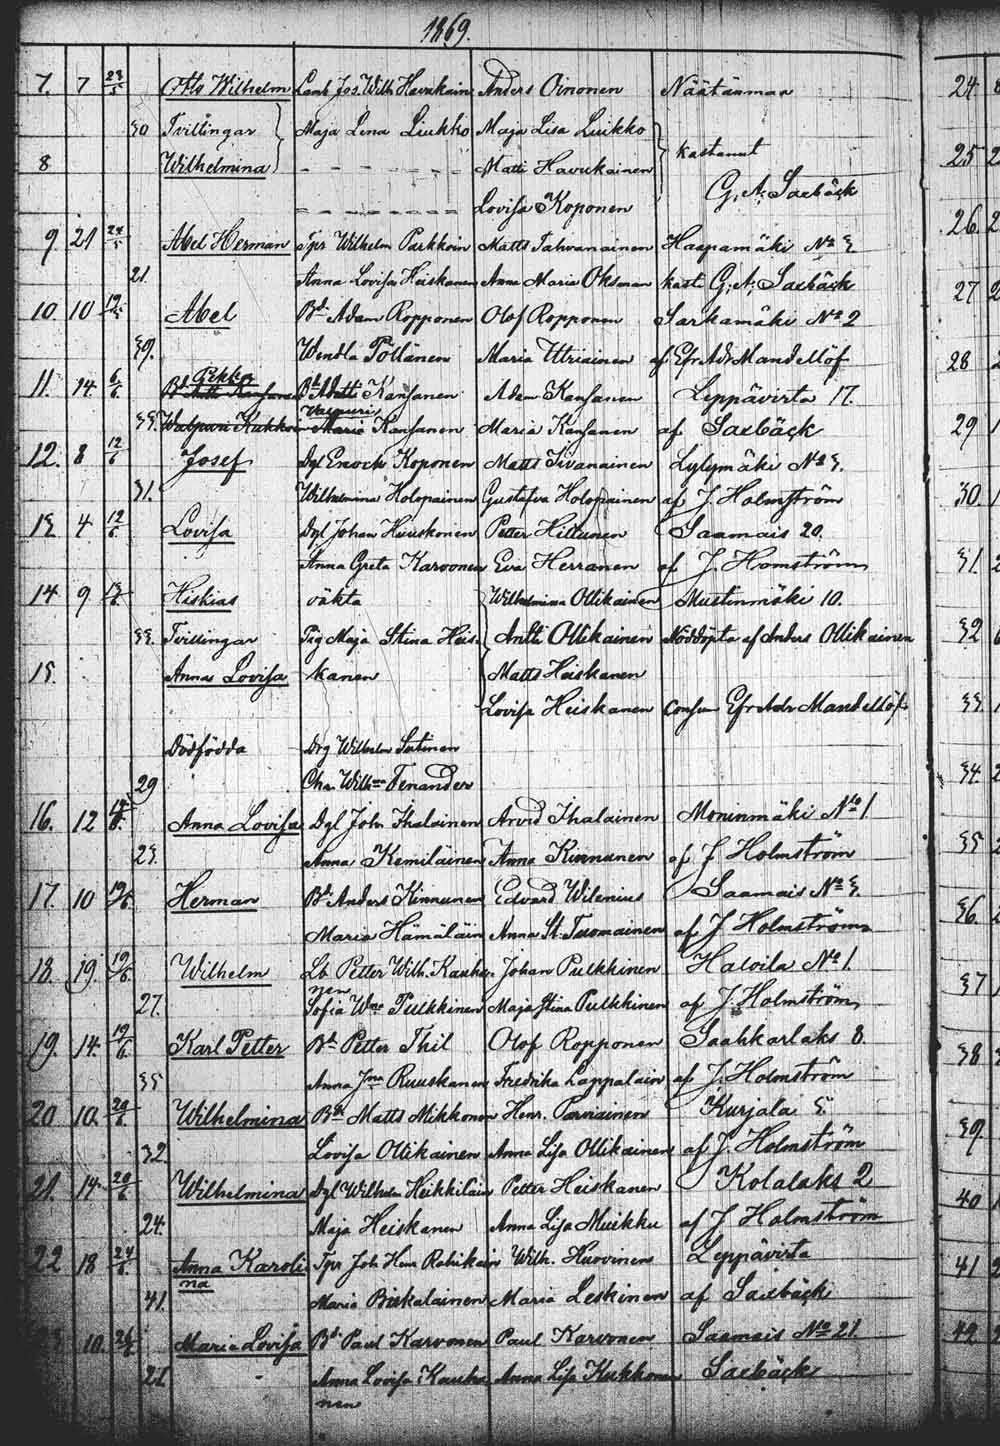 1869.
7. 7 23/5 Otto Wilhelm Lamb Jos. Wilh Havukain Anders Oinonen Näätänmaa
30 Tvillingar Maja Lena Liukko Maja Lisa Luikko
8 Wilhelmina - - - - - - Matti Havukainen kastanut
- - - - - - Lovisa Koponen G. A. Saxbäck
9. 21 24/5 Abel Herman Tpr Wilhelm Parkkoin Matts Tahvanainen Haapamäki No 3
21. Anna Lovisa Heiskanen Anna Maria Oksman kast. G. A. Saxbäck
10. 10 12/5 Abel Bd. Adam Ropponen Olof Ropponen Sarkamäki No 2
39. Wendla Pöllänen Maria Utriainen af Efr Adr Mandellöf
Pekka
11. 14. 6/6 Bd Antti Kansanen Bd Antti Kansanen Adam Kansanen Leppävirta 17.
Valpuri
33. Walpuri Kukkonen Maria Kansanen Maria Kansanen af Saxbäck
12. 8 12/6 Josef Dgl Enoch Koponen Matts Iivanainen Lylymäki No 3.
31. Wilhelmina Holopainen Gustafva Holopainen af J. Holmström
13 4 12/6 Lovisa Dgl Johan Huuskonen Petter Hiltunen Saamais 20.
Anna Greta Karvonen Eva Herranen af J. Homström
14 9 13/6 Hiskias oäkta Wilhelmina Ollikainen Mustinmäki 10.
33. Tvillingar Pig Maja Stina Heis- Antti Ollikainen Nöddöpta af Anders Ollikainen
15. Anna Lovisa kanen Matts Heiskanen
Lovisa Heiskanen Consm Efr Adr Mandellöf
Dödfödda Drg Wilhelm Sutinen
29 Cha. Wilhna Fenander
16. 12 14/6. Anna Lovisa Dgl Joh. Ihalainen Arvid Ihalainen Moninmäki No 1
23. Anna Kemiläinen Anna Kinnunen af J Holmström
17. 10 19/6. Herman Bd. Anders Kinnunen Edvard Wilenius Saamais No 3
Maria Hämäläin Anna St. Tuomainen af J. Holmström
18. 19. 19/6. Wilhelm Lb Petter Wilh. Kauha- Johan Pulkkinen Halvila No 1.
nen
27. Sofia Wna Pulkkinen Maja Stina Pulkkinen af J. Holmström
19. 14. 19/6 Karl Petter Bd. Petter Thil Olof Ropponen Saahkarlaks 8.
35 Anna Jna Ruuskanen Fredrika Lappalain af J. Holmström
20 10. 20/6. Wilhelmina Bd Matts Mikkonen Henr. Parviainen Kurjala 3.
32 Lovisa Ollikainen Anna Lisa Ollikainen af J. Holmström
21. 14. 20/6 Wilhelmina Dgl Wilhelm Heikkiläin Petter Heiskanen Kolalaks 2
24. Maja Heiskanen Anna Lisa Muikku af J Holmström
22 18 24/6. Anna Karoli Tpr Joh Henr Rahikain Wilh. Kuovinen Leppävirta
na
41. Maria Birkalainen Maria Leskinen af Saxbäck
23 10. 26/6 Maria Lovisa Bd. Paul Karvonen Paul Karvonen Saamais No 21.
21. Anna Lovisa Kauha Anna Lisa Kukkonen Saxbäck
nen
24
25
26.
27
28
29
30.
31.
32
33.
34.
35
36.
37
38
39.
40
41
42.